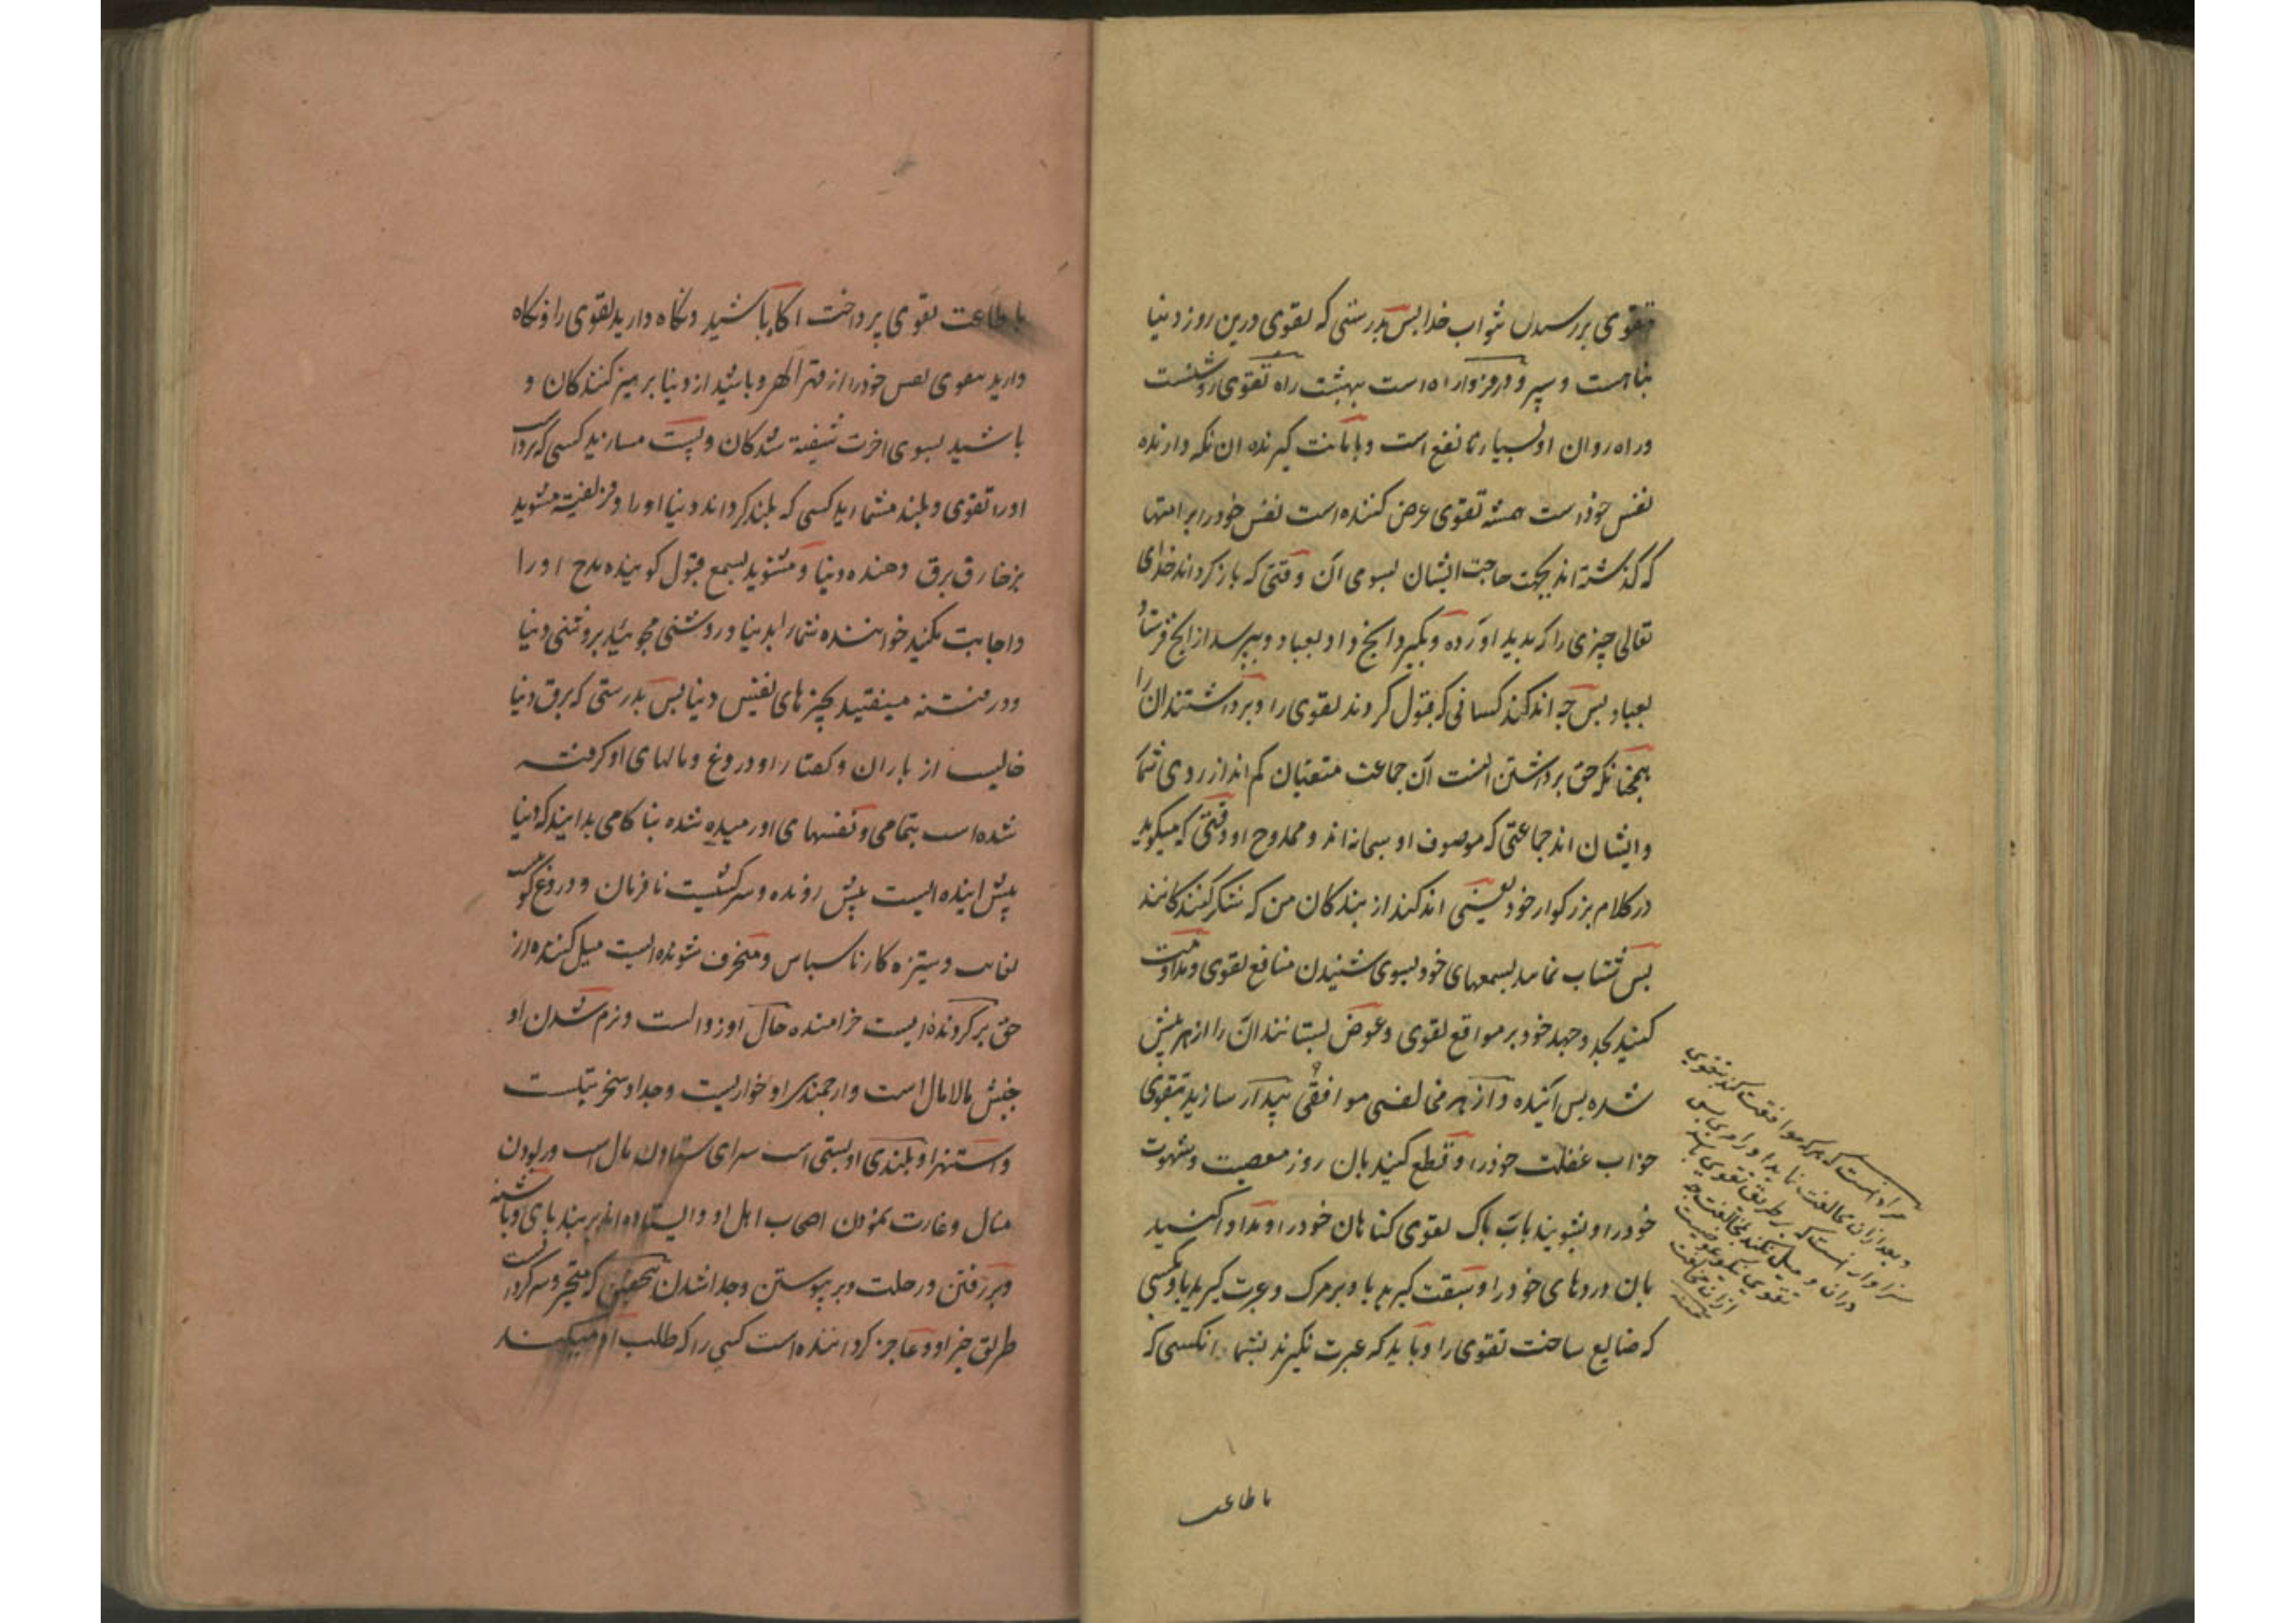 تقوی بر رسیدن ثواب خدا بس بدرستی که تقوی درین روز دنیا
پناهست و سپر و در فردا راه است ببهشت راه تقوی روشنست
و راه روان او بسیار با نفع است و بامانت گیرنده ان نکه دارنده
نفس خود است همیشه تقوی عرض کننده است نفس خود را بر امتها
که گذشته اند بجهت حاجت ایشان بسوی آن وقتی که باز کرداند خدای
تعالی چیزی را که بدید اورده و بگیرد انچ داد بعباد و بپرسد از انچ فرستاد
بعباد بس چه اندکند کسانی که قبول کردند تقوی را و برداشتند ان را
همچنانکه حق برداشتن انست آن جماعت متقیان کم اند از روی شمار
و ایشان اند جماعتی که موصوف او سبحانه اند و ممدوح او وقتی که میکوید
در کلام بزرکوار خود یعنی اندکند از بندکان من که شکر کنندکانند
بس شتاب نمایید بسمعهای خود بسوی شنیدن منافع تقوی و مداومت
کنید بجد و جهد خود بر مواقع تقوی و عوض بستانند ان را از هر پیش
شده بس آینده و از هر مخالفی موافقی بیدار سازید بتقوی
خواب غفلت خود را و قطع کنید بان روز معصیت و شهوت
خود را و بشویید باب پاک تقوی کناهان خود را و مداوا کنید
بان دردهای خود را و سبقت کیرید باو بر مرک و عبرت کیرید باو بکسی
که ضایع ساخت تقوی را و باید که عبرت نکیرند بشما انکسی که
مراد انست که هر که موافقت کند بتقوی
و بعد از ان مخالفت نماید او را مر بس
سزاوار انست که بر طریق تقوی باشد
دران و میل نکند بمخالفت چه
تقوی نکو عوضیست
از ان مخالفت
باطاعت
باطاعت تقوی پرداخت اکاه باشید و نکاه دارید تقوی را و نکاه
دارید بتقوی نفس خود را از قهر الهی و باشید از دنیا برهیز کنندکان و
باشید بسوی اخرت شیفته شدکان و پست مسازید کسی که برداشت
او را تقوی و بلند مشمارید کسی که بلند کرداند دنیا او را و فریفته مشوید
بزخارف برق دهنده دنیا و مشنوید بسمع قبول کوینده مدح او را
و اجابت مکنید خواننده شما را بدنیا و روشنی مجویید بروشنی دنیا
و در فتنه میفتید بچیزهای نفیس دنیا بس بدرستی که برق دنیا
خالیست از باران و کفتار او دروغ و مالهای او کرفته
شده است بتمامی و نفسهای او رمیده شده بناکامی بدانید که دنیا
پیش اینده ایست پیش رونده و سرکشیست نافرمان و دروغ کوست
بغایت و ستیزه کار ناسپاس و منحرف شونده ایست میل کننده از
حق بر کردنده ایست خرامنده حال او زوالست و نرم شدن او
جنبش مالامال است و ارجمندی او خواریست و جد او سخریتست
و استهزا و بلندی او بستی است سرای ستادن مال است و ربودن
منال و غارت نمودن اصحاب اهل او و ایستاده اند بر بند پای و باشنه
و بر رفتن و رحلت و بر پیوستن و جدا شدن بتحقیق که متحیر و سرکردان است
طریق جز او و عاجز کرداننده است کسی را که طلب او میکنند